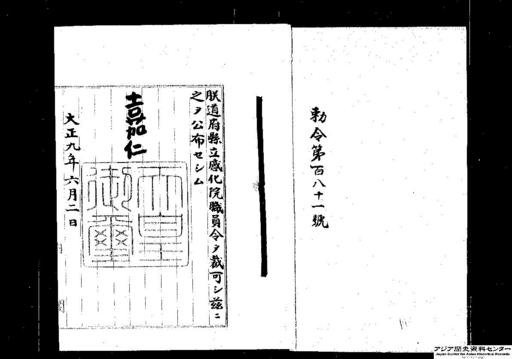 勅令第百八十一號
朕道府縣立感化院職員令ヲ裁可シ茲ニ
之ヲ公布セシム
嘉仁
天皇
御璽
大正九年六月二日
アジア歴史資料センター
Japan Center for Asian Historical Records